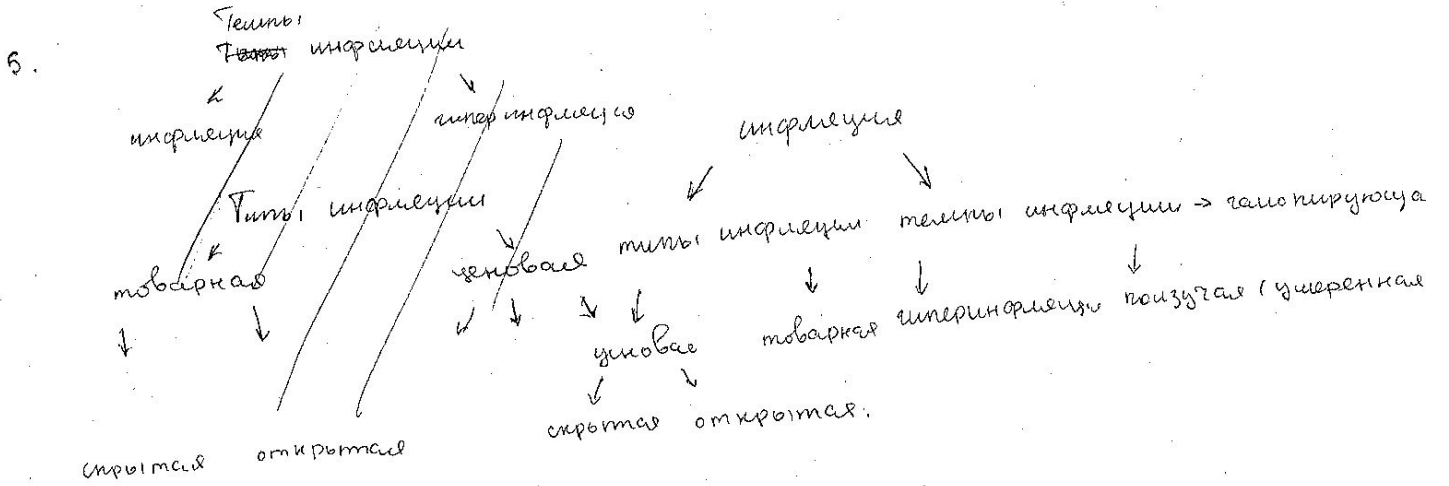 5.
Темпы
инфляции
инфляция гиперинфляция
Типы инфляции
товарная ценовая
скрытая открытая
инфляция
типы инфляции темпы инфляции → галопирующа
ценовае товарная гиперинфляци ползучая (умеренная
скрытая открытая.